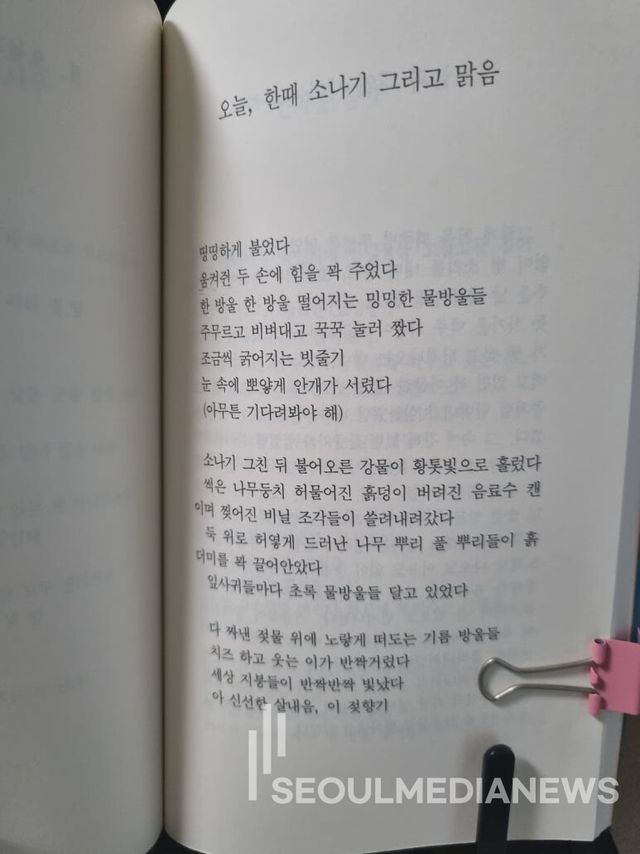 오늘, 한때 소나기 그리고 맑음
띵띵하게 불었다
움켜쥔 두 손에 힘을 꽉 주었다
한 방울 한 방울 떨어지는 밍밍한 물방울들
주무르고 비벼대고 꾹꾹 눌러 짰다
조금씩 굵어지는 빗줄기
눈 속에 뽀얗게 안개가 서렸다
(아무튼 기다려봐야 해)
소나기 그친 뒤 불어오른 강물이 황톳빛으로 흘렀다
썩은 나무둥치 허물어진 흙덩이 버려진 음료수 캔
이며 찢어진 비닐 조각들이 쓸려내려갔다
둑 위로 허옇게 드러난 나무 뿌리 풀 뿌리들이 흙
더미를 꽉 끌어안았다
잎사귀들마다 초록 물방울들 달고 있었다
다 짜낸 젖물 위에 노랗게 떠도는 기름 방울들
치즈 하고 웃는 이가 반짝거렸다
세상 지붕들이 반짝반짝 빛났다
아 신선한 살내음, 이 젖향기
SEOULMEDIANEWS